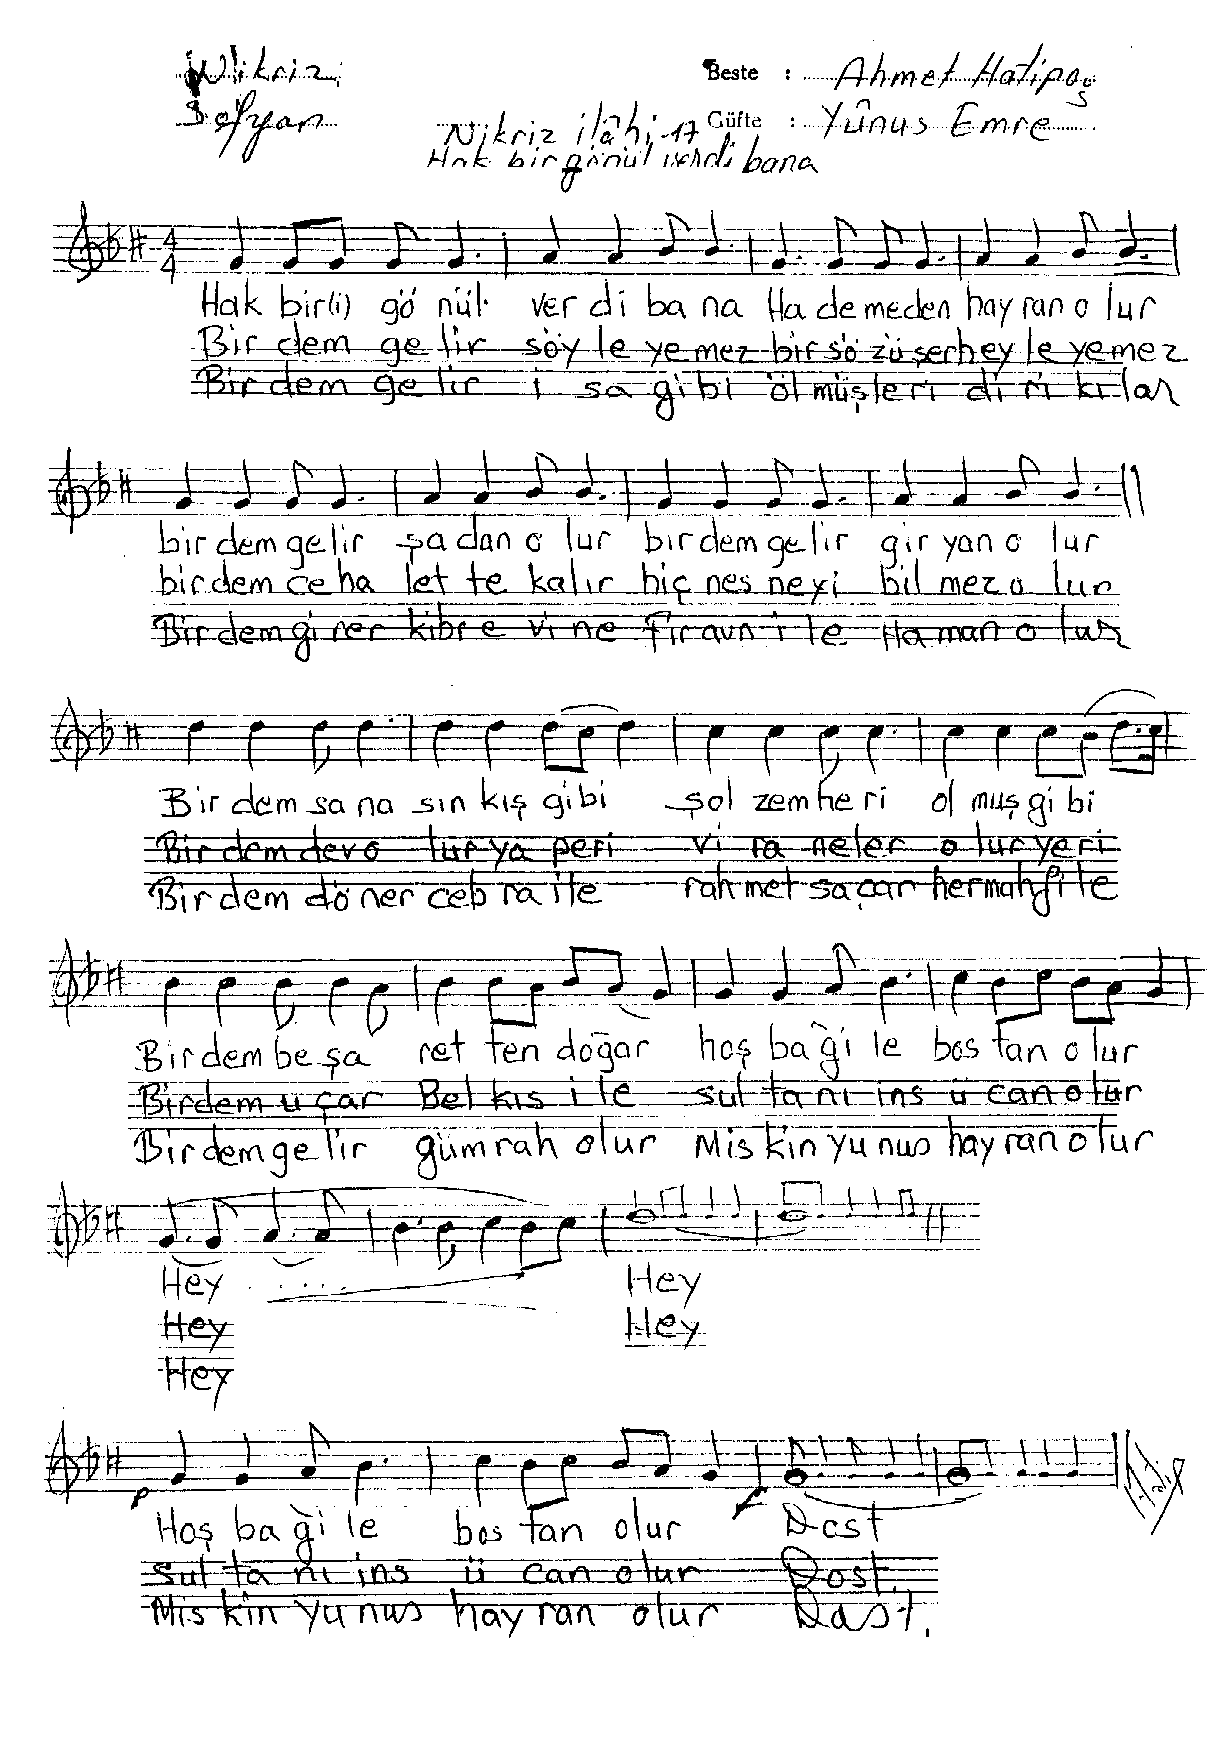 Nikriz Beste : Ahmet Hatipoğ
Sofyan Güfte : Yûnus Emre
Nikriz ilâhi-17
Hak bir gönül verdi bana
4
4
Hak bir(i) gö nül ver di ba na Ha demeden hay ran o lur
Bir dem ge lir söy le ye mez bir sö zü şerhey le ye mez
Bir dem ge lir i sa gi bi ölmüşleri di ri kılar
bir dem ge lir şa dan o lur bir dem ge lir gir yan o lur
bir dem ce ha let te kalır hiç nes neyi bil mez o lur
Bir dem gi rer kibr e vi ne firavn i le Ha man o lur
Bir dem sa na sın kış gi bi şol zemhe ri ol muş gi bi
Bir dem dev o lur ya peri vi ra neler o lur yeri
Bir dem dö ner ceb ra ile rahmet saçar hermahfile
Bir dem be şa ret ten doğar hoş ba ği le bos tan o lur
Bir dem u çar Bel kıs i le sul ta nı ins ü can o lur
Bir dem ge lir gümrah olur Mis kin yu nus hay ran o lur
Hey . . . . Hey
Hey Hey
Hey
p
Hoş ba ği le bos tan olur Dost
sul ta nı ins ü can olur Dost.
Mis kin yu nus hay ran olur Dost.